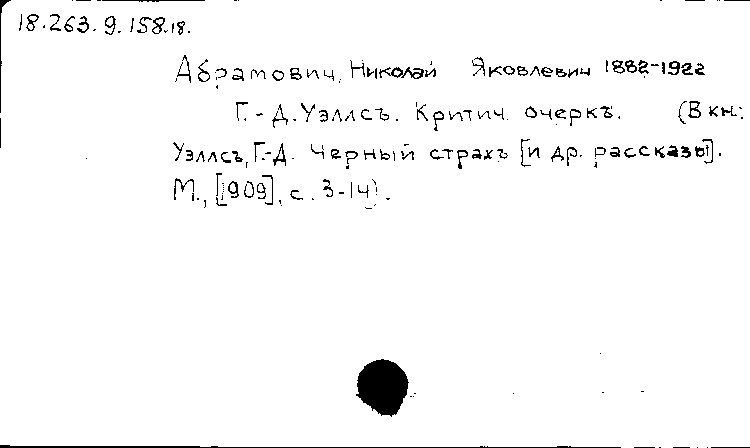 18.263.9.158.18.
Абрамович, Николай Яковлевич 1882-1922
Г.-Д. Уэллсъ. Критич. очеркъ. (В кн:
Уэллсъ, Г.-Д. Черный страхъ [и др. рассказы].
М., [1909], с. 3-14).